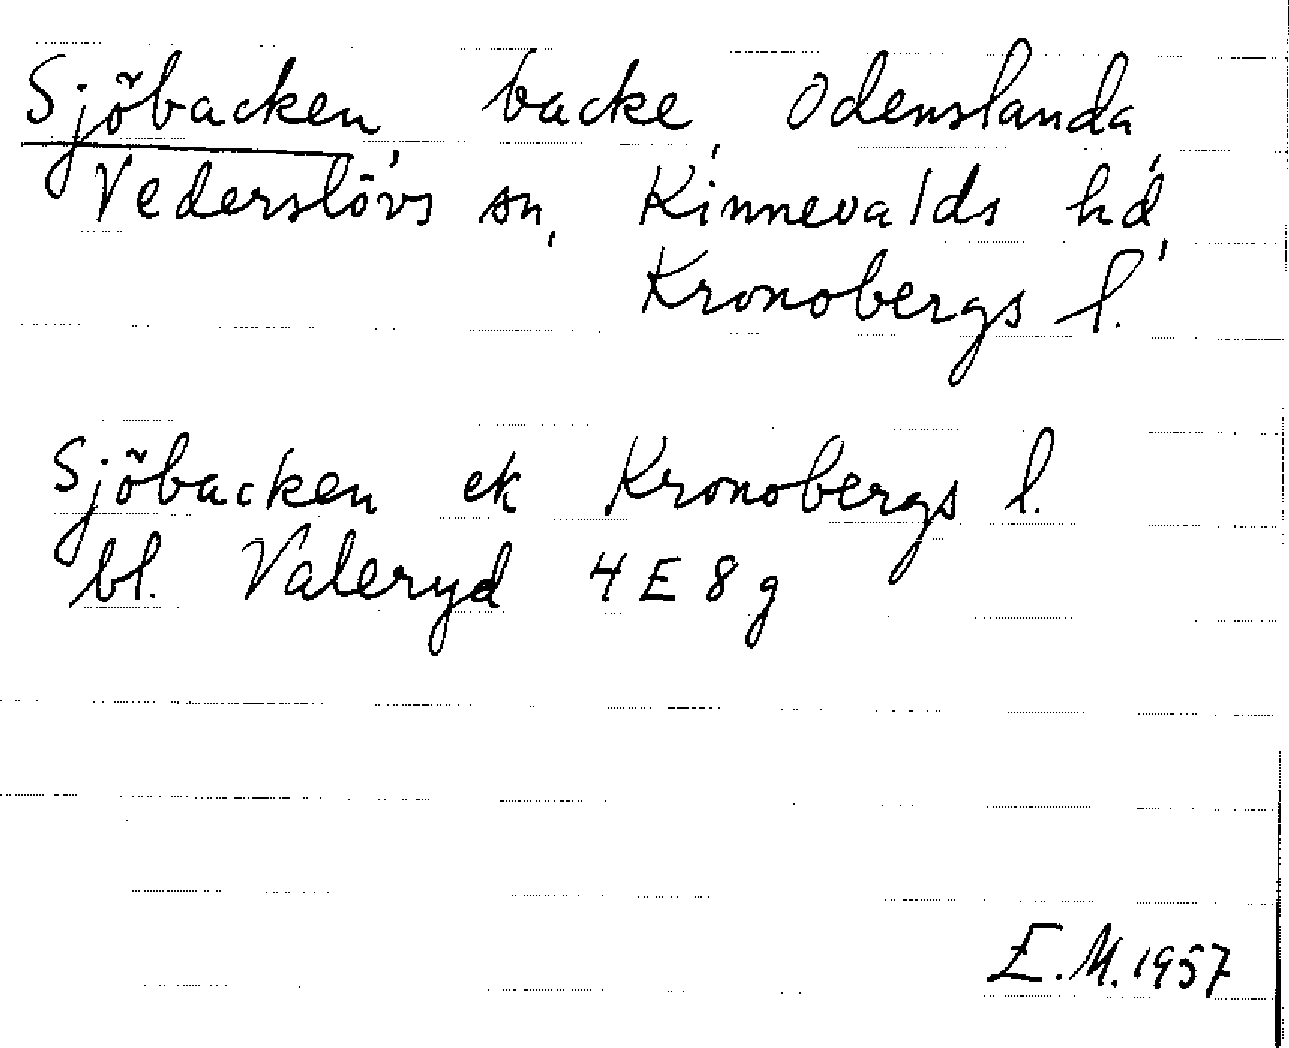 Sjöbacken, backe, Odenslanda,
Vederslövs sn, Kinnevalds hd,
Kronobergs l.
Sjöbacken ek Kronobergs l.
bl. Valeryd 4 E 8 g
E.M. 1957